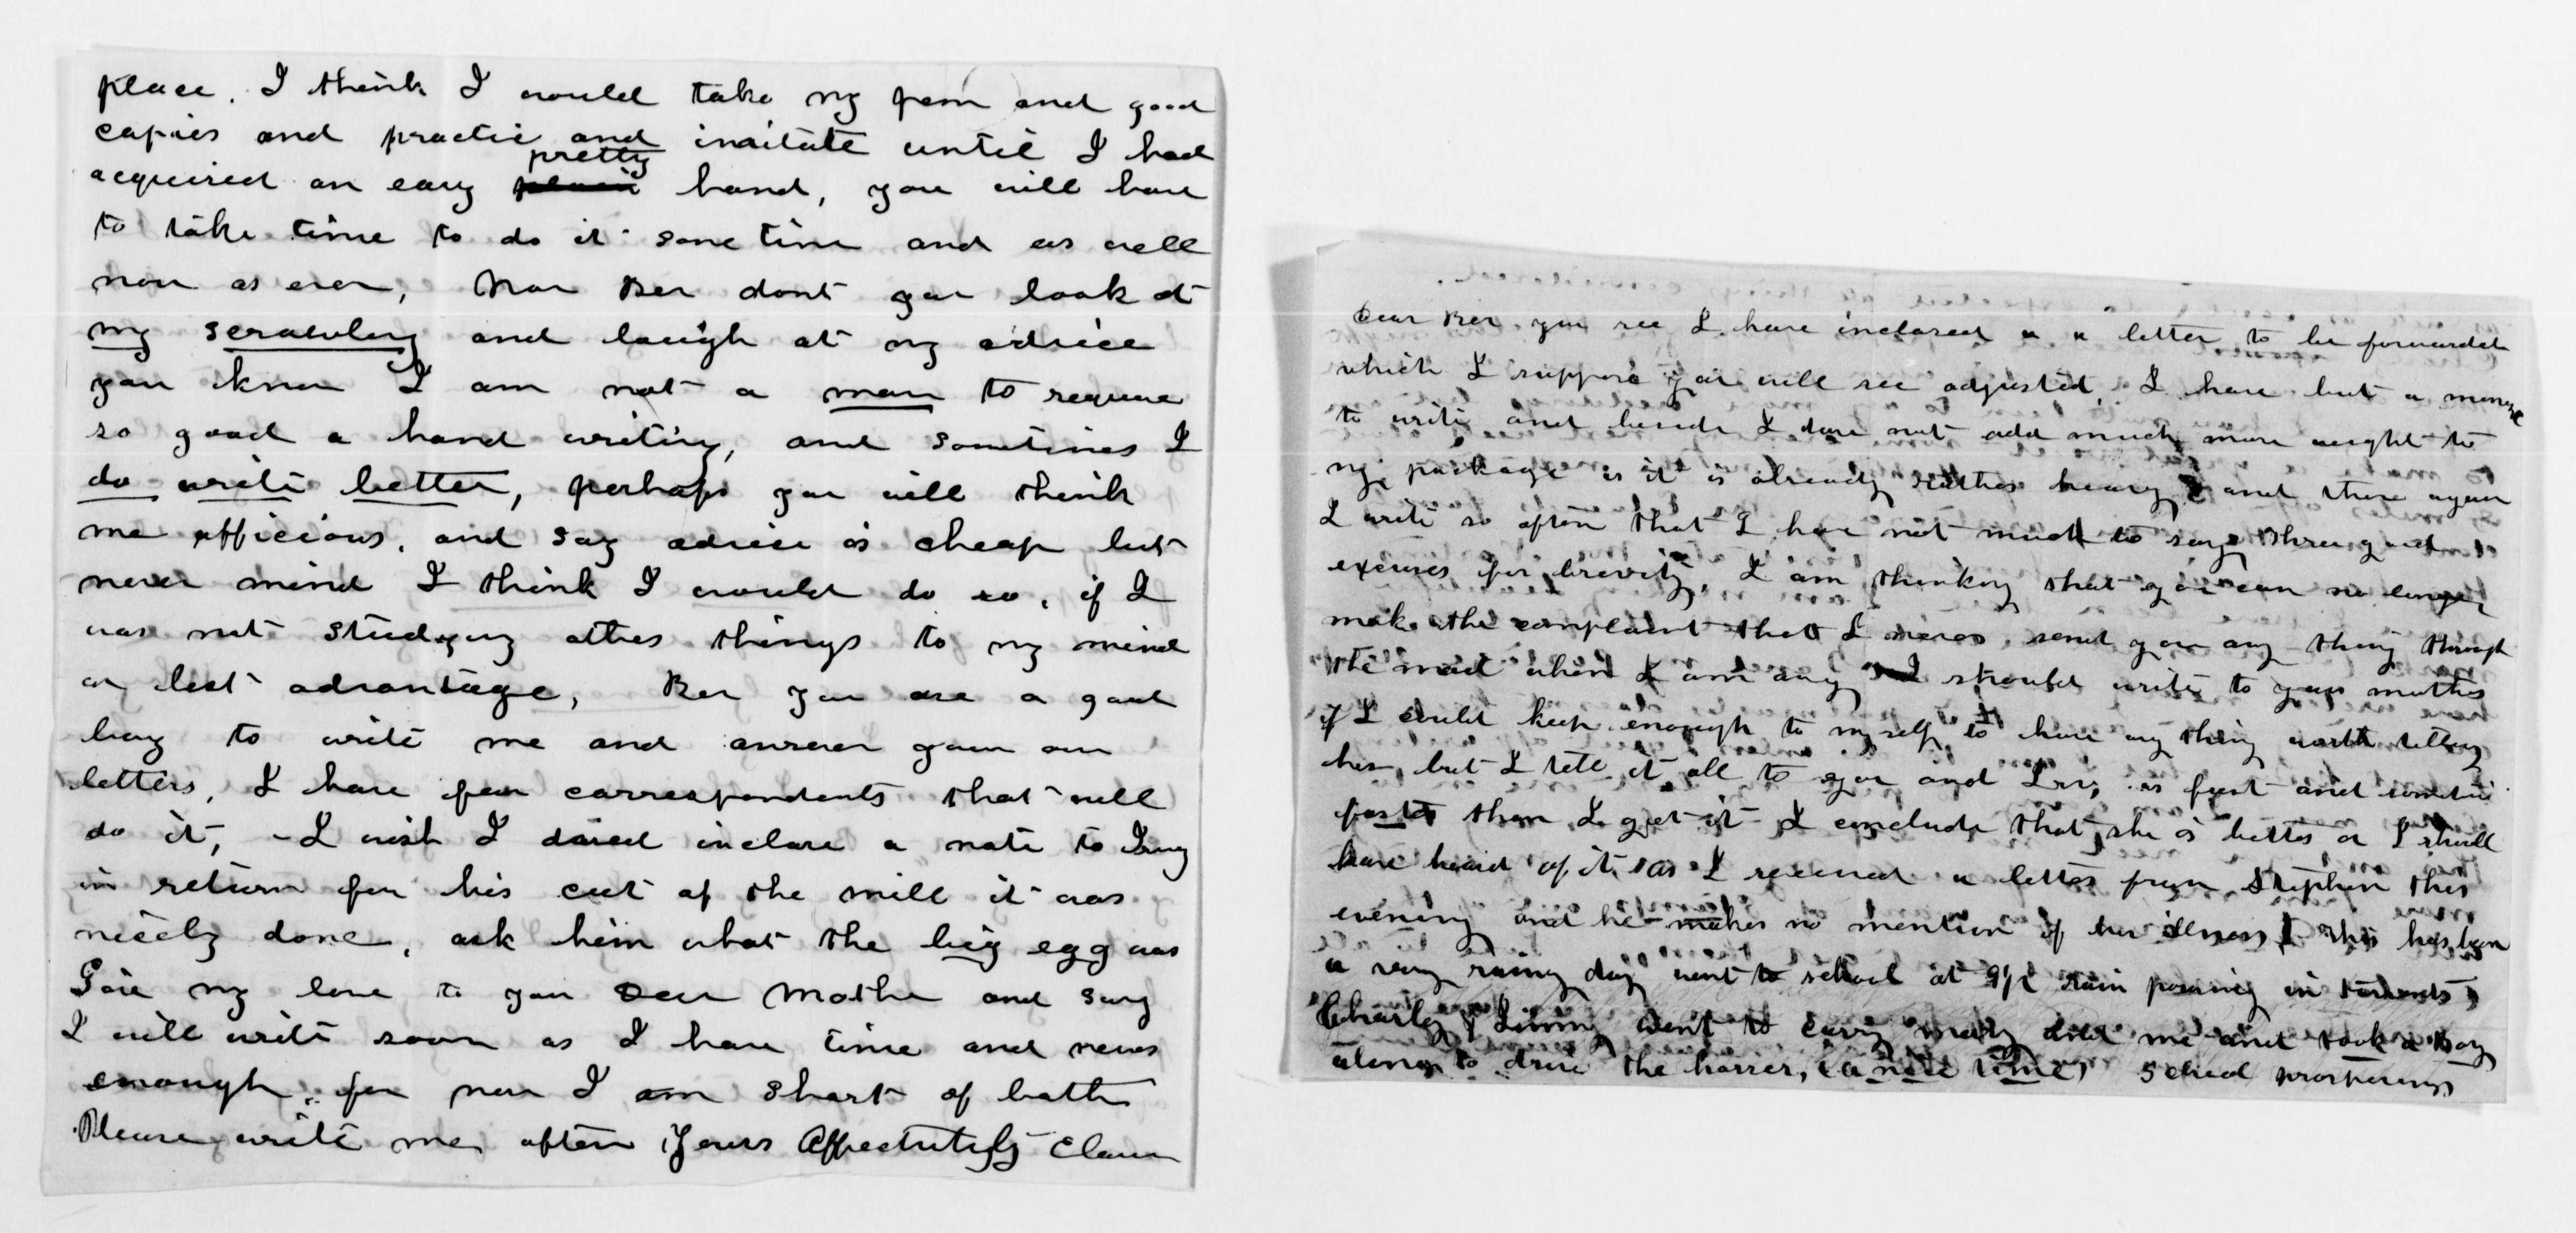 place. I think I would take my pen and good
copies and practic and imitate until I had
acquired an easy pretty plain hand, you will have
to take time to do it some time and as well
now as ever, Now Ber dont you look at
my scrawling and laugh at my advice
you know I am not a man to require
so good a hand writing, and sometimes I
do write better, perhaps you will think
me officious, and say advice is cheap but
never mind I think I would do so, if I
was not studying other things to my mind
or best advantage, Ber you are a good
boy to write me and answer your own
letters, I have few correspondents that will
do it, - I wish I dared inclose a note to Irvy
in return for his cut of the mill it was
nicely done, ask him what the big egg was
Give my love to your Dear Mother and say
I will write soon as I have time and news
enough, for now I am short of both
Please write me often Yours Affectntefly Clara
Dear Ber you see I have inclosed a a letter to be forwarded
which I suppose you will see adjusted, I have but a minute
to write and beside I dare not add much more weight to
my package as it is already rather heavy, and then again
I write so often that I have not much to say three good
excuses for brevity, I am thinking that you can no longer
make the complaint that I never send you any thing through
the mail when I am away I should write to your mother
if I could keep enough to myself to have any thing worth telling
her, but I tell it all to you and Irv, as fast and sometimes
faster than I get it I conclude that she is better or I should
have heard of it as I received a letter from Stephen this
evening and he makes no mention of her illness, this has been
a very rainy day went to school at 9½ rain pouring in torrents,
Charley & went to carry Mary and me and took a boy
along to drive the horses, (a nice time) School prospering